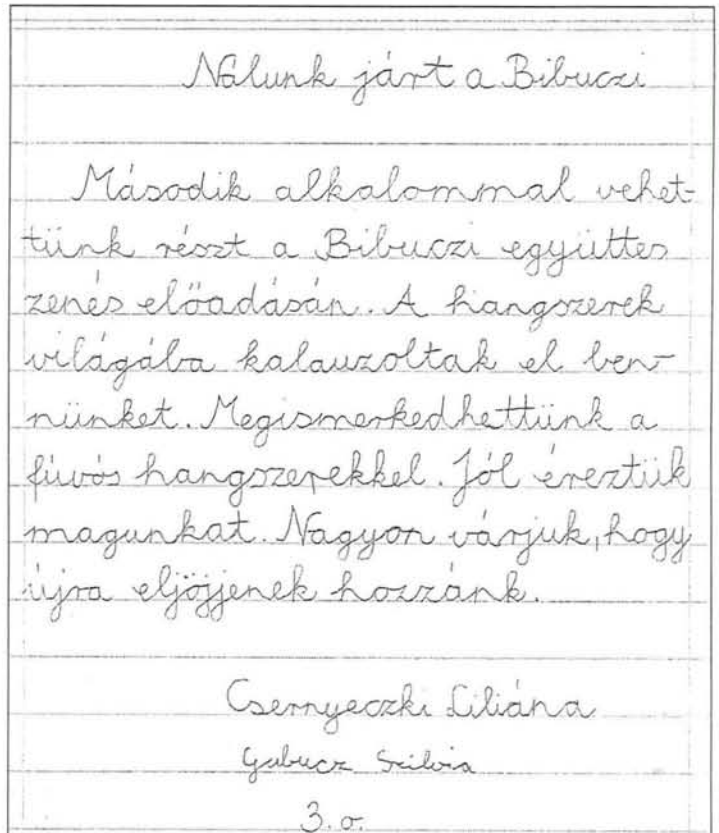 Nálunk járt a Bibuczi
Második alkalommal vehet-
tünk részt a Bibuczi együttes
zenés előadásán. A hangszerek
világába kalauzoltak el ben-
nünket. Megismerkedhettünk a
fúvós hangszerekkel. Jól éreztük
magunkat. Nagyon várjuk, hogy
újra eljöjjenek hozzánk.
Csernyeczki Liliána
Gubucz Szilvia
3. o.